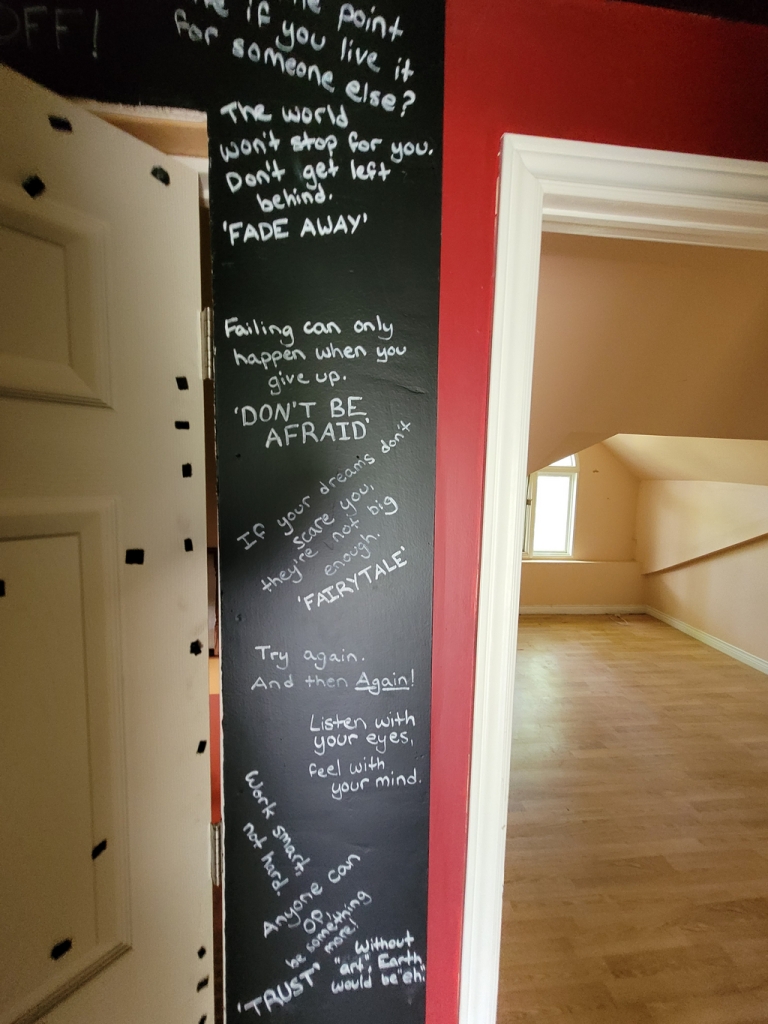 OFF!
point
if you live it
for someone else?
The world
won't stop for you.
Don't get left
behind.
'FADE AWAY'
Failing can only
happen when you
give up.
'DON'T BE
AFRAID'
If your dreams don't
scare you,
they're not big
enough.
'FAIRYTALE'
Try again.
And then Again!
Listen with
your eyes,
feel with
your mind.
Work smart,
not hard.
Anyone can
op,
be something
more!
'TRUST'
Without
"art", Earth
would be "eh".